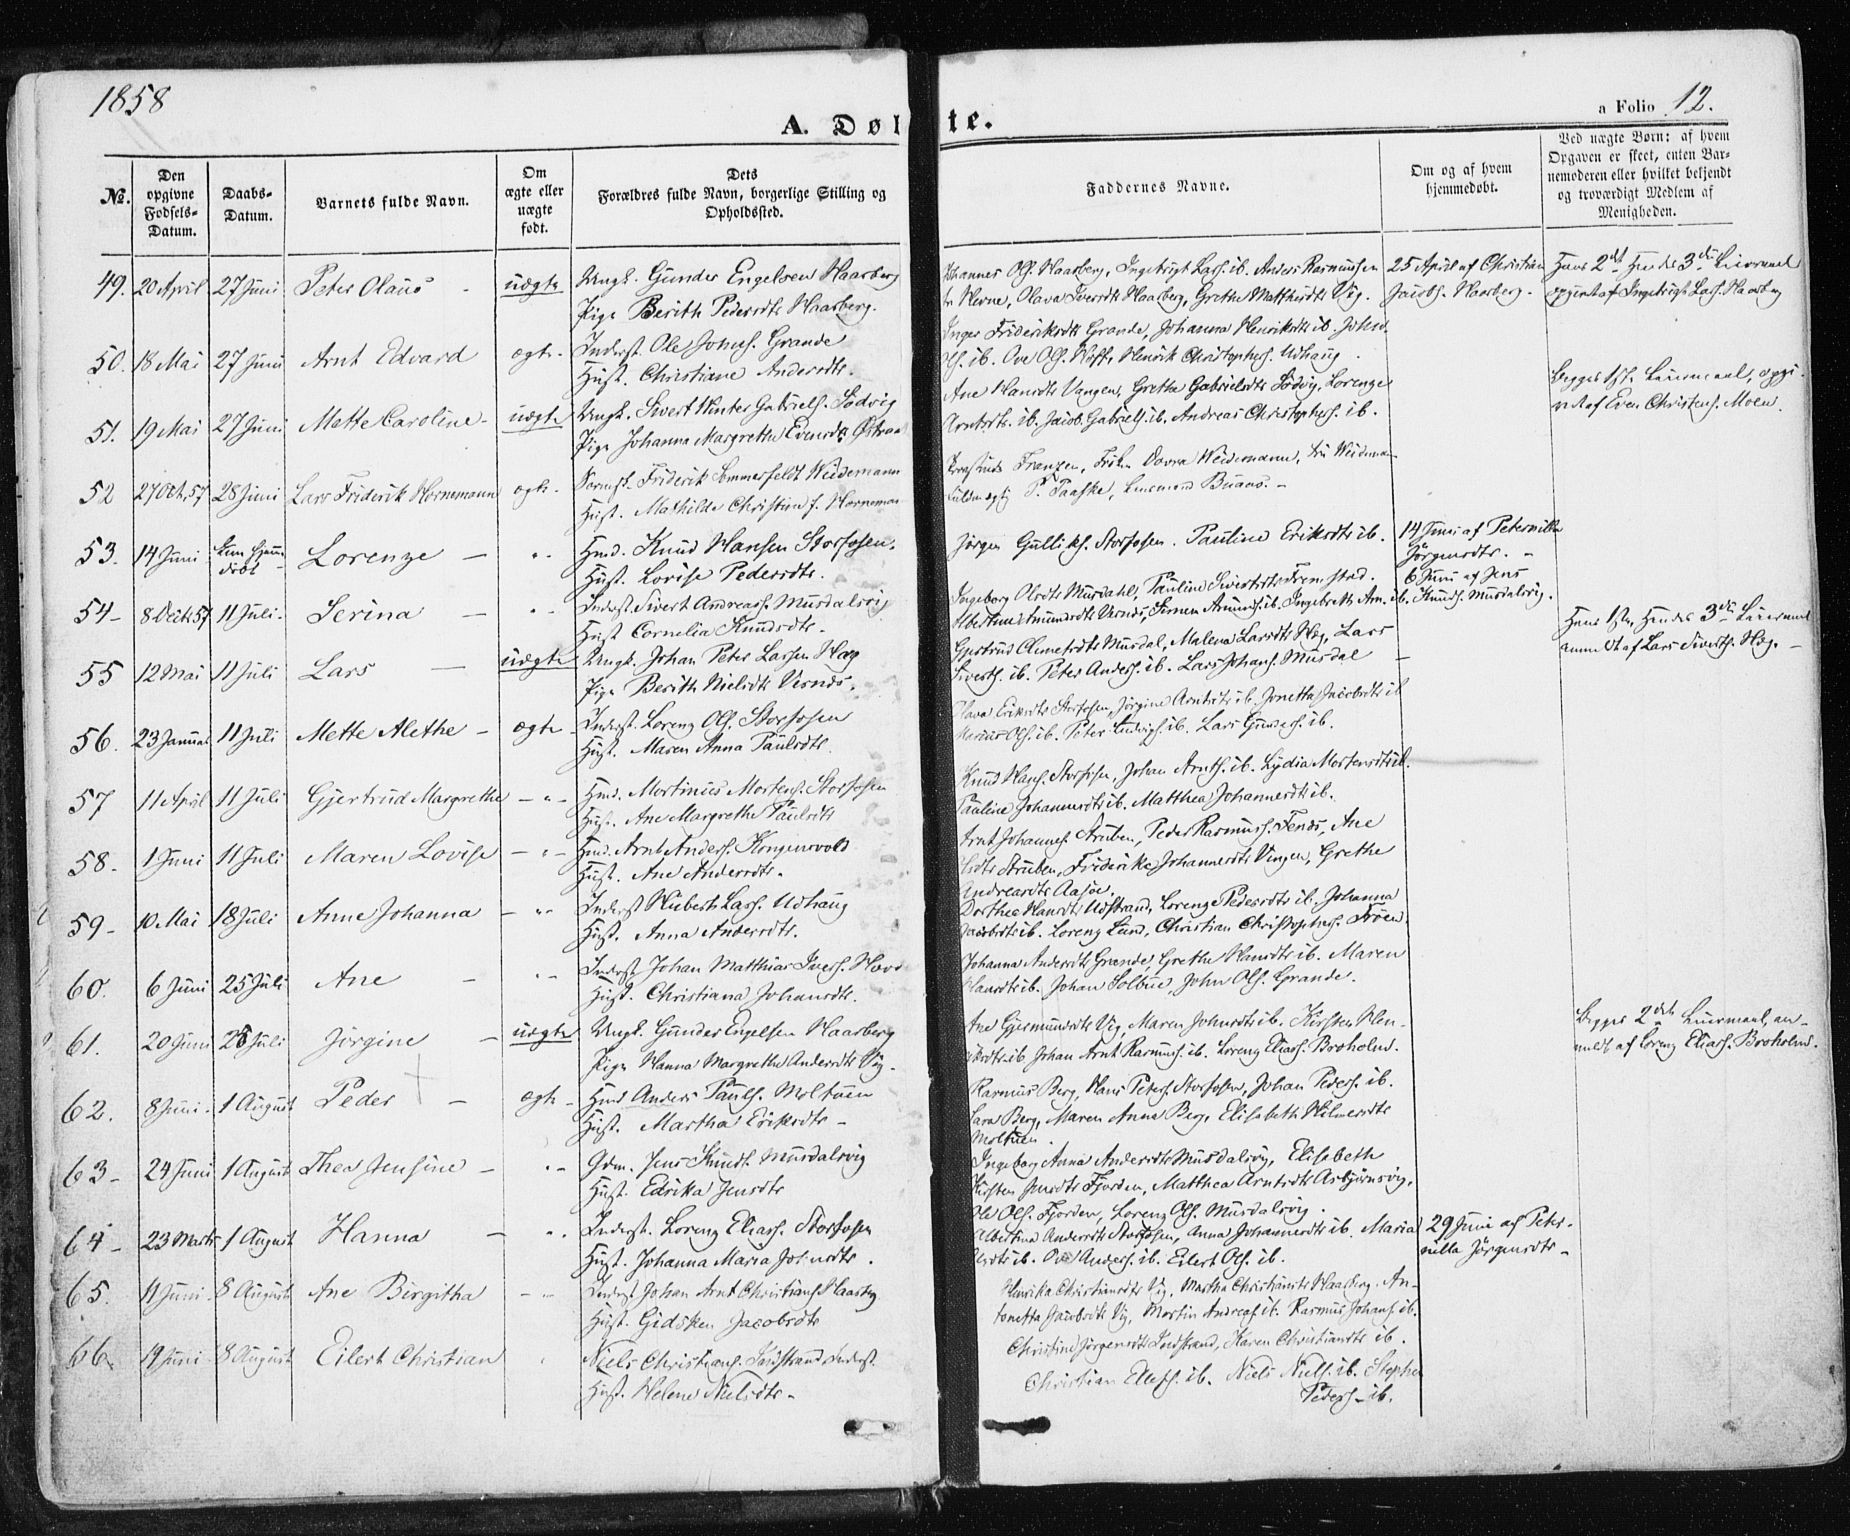 1858
A. Døbte.
a Folio 12.
№.
Den opgivne Fødsels-Datum.
Daabs-Datum.
Barnets fulde Navn.
Om ægte eller uægte født.
Dets Forældres fulde Navn, borgerlige Stilling og Opholdssted.
Faddernes Navne.
Om og af hvem hjemmedøbt.
Ved uægte Børn: af hvem Opgaven er skeet, enten Barnemoderen eller hvilket bekjendt og troværdigt Medlem af Menigheden.
49. 20 April 27 Juni Peter Olaus - uægte Ungk. Gunder Engelsen Haarberg
Pige Berith Pedersdtr Haarberg.
Johannes Ols. Haarberg, Ingebrigt Lars. ib. Anders Rasmussen
Olava Iversdtr Haarberg, Grethe Matthisdtr Vig.
25 April af Christian
Jacobs. Haarberg.
Hans 2det Hendes 3die Leiermaal
opgivet af Ingebrigt Lars. Haarberg
50. 18 Mai 27 Juni Arnt Edvard ægte - Inderst. Ole Johns. Grande
Hust. Christiane Andersdtr.
Inger Frideriksdtr Grande, Johanna Henriksdtr ib. John
Ols. ib. Ove Ols. Hoff, Henrik Christophers. Udhaug.
51. 19 Mai 27 Juni Mette Caroline - uægte Ungk. Sivert Winter Gabriels. Sødvig
Pige Johanna Margrethe Evensdtr
Ane Hansdtr Vangen, Grethe Gabrielsdtr Sødvig, Lorenze
Arntsdtr. ib. Jacob Gabriels. ib. Andreas Christophers. ib.
Begges 1ste Leiermaal, opgi-
vet af Even Christens. Moen.
52 27 Oct. 57 28 Juni Lars Friderik Hornemann ægte - Friderik Sommerfeldt Weidemann
Hust. Mathilde Christine f. Horneman
Franzen, Frøken Weidemann, Fru Weideman
P. Paaske, Lensmand
53. 14 Juni Lorenze - Hmd. Knud Hansen Storfosen.
Hust. Lovise Pedersdtr.
Jørgen Gulliks. Storfosen. Pauline Eriksdtr ib.
14 Juni af Peternille
Jørgensdtr.
54 - 8 Decbr 57 11 Juli. Serina - Inderst. Sivert Andreass. Musdalsvig
Hust Cornelia Knudsdtr.
Ingeborg Olsdtr Musdahl, Pauline Sivertsdtr Fremstad.
6 Juni af Jens
Knuds. Musdalsvig.
55 12 Mai 11 Juli Lars - uægte Ungk. Johan Peter Larsen
Pige Berith Nielsdtr
Musdal, Malena Larsdtr Lars
Siverts. ib. Peter Anders. ib. Lars Johans. Musdal
Hans 1ste, Hendes 3die Leiermaal
anmeldt af Lars Siverts.
56. 23 Januar 11 Juli Mette Alethe - ægte - Inderst. Lorenz Ols. Storfosen
Hust. Maren Anna Paulsdtr.
Olava Eriksdtr Storfosen, Jørgine Arntsdtr ib. Jonetta Jacobsdtr ib
Marius Ols. ib. Peter Ludvigs. ib. Lars Gunders. ib.
57 11 April 11 Juli Gjertrud Margrethe - „ - Hmd. Mortinus Mortens. Storfosen
Hust. Ane Margrethe Paulsdtr
Knud Hans. Storfosen, Johan Arnts. ib. Lydia Mortensdtr ib.
Pauline Johannesdtr ib. Matthea Johannesdtr ib.
58. 1 Juni 11 Juli Maren Lovise - „ - Hmd. Arnt Anders. Kongensvold
Hust. Ane Andersdtr.
Arnt Johannes. Struben, Peder Rasmuss. Ane
Struben, Friderike Johannesdtr Vingen, Grethe
Andreasdtr Aasøe.
59 - 10 Mai 18 Juli Anne Johanna - „ Inderst Hubert Lars. Udhaug
Hust. Anna Andersdtr.
Dorthea Hansdtr Udstrand, Lorenze Pedersdtr ib. Johanna
Jacobsdtr ib. Lorenz Lund, Christian Christophers. Frøen.
60. 6 Juni 25 Juli Ane - „ Inderst Johan Matthias Ivers.
Hust. Christiana Johansdtr.
Johanna Andersdtr Grande, Grethe Hansdtr ib. Maren
Hansdtr ib. Johan Solbue, John Ols. Grande.
61. 20 Juni 25 Juli Jørgine - uægte Ungk. Gunder Engelsen Haarberg
Pige Hanna Margrethe Andersdtr Vig.
Ane Gjermundsdtr Vig, Maren Johnsdtr ib. Kirsten Hen-
riksdtr ib Johan Arnt Rasmuss. ib. Lorenz Eliass. Broholm.
Begges 2det Leiermaal, an-
meldt af Lorenz Eliass. Broholm.
62. 8 Juni. 1 August Peder - ægte - Hmd Anders Pauls. Moltuen
Hust. Martha Eriksdtr -
Rasmus Berg, Hans Peters. Storfosen, Johan Peders. ib.
Sara Berg, Maren Anna Berg, Elisabeth Hilmersdtr
Moltuen.
63 - 24 Juni 1 August Thea Jensine - „ - Gdm. Jens Knuds. Musdalsvig
Hust. Edrika Jensdtr
Ingeborg Anna Andersdtr Musdalsvig, Elisabeth
Kirsten Jensdtr Fjorden, Matthea Arntsdtr Asbjørnsvig,
Ole Ols. Fjorden, Lorenz Ols. Musdalsvig.
64 - 23 Marts 1 August Hanna - „ Inderst. Lorenz Eliass. Storfosen
Hust. Johanna Maria Johnsdtr.
Albertina Andersdtr Storfosen, Anna Johannesdtr ib. Maria
Ove Anders. ib. Eilert Ols. ib.
29 Juni af Peter-
nille Jørgensdtr -
65. 11 Juni. 8 August Ane Birgitha - „ Inderst Johan Arnt Christians. Haarberg
Hust. Gidsken Jacobsdtr
Henrika Christiansdtr Vig, Martha Christiansdtr Haarberg. An-
tonetta Jacobsdtr Vig, Martin Andreas. ib. Rasmus Johans. ib.
66. 19 Juni 8 August Eilert Christian Niels Christians. Indstrand, Inderst.
Hust. Helene Nielsdtr -
Christine Jørgensdtr Indstrand, Karen Christiansdtr ib.
Christian Ellefs. ib. Niels Niels. ib. Stephen
Peders - ib.